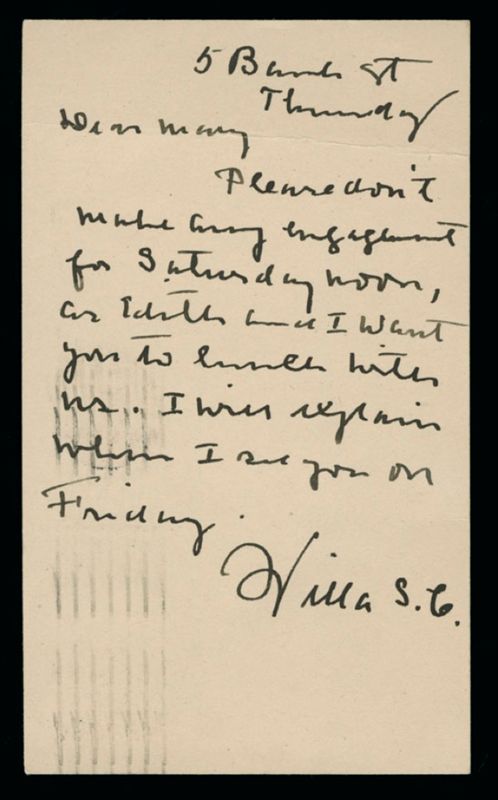 5 Bank St
Thursday
Dear Mary
Please don't
make any engagement
for Saturday noon,
as Edith and I want
you to lunch with
us. I will explain
when I see you on
Friday.
Willa S. C.